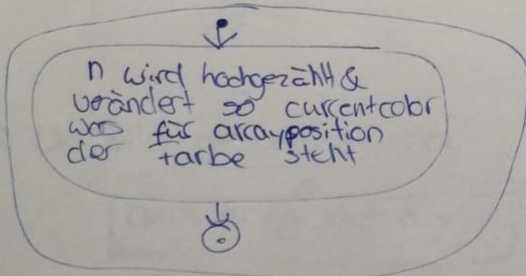 n wird hochgezählt &
verändert so currentcolor
was für arrayposition
der Farbe steht